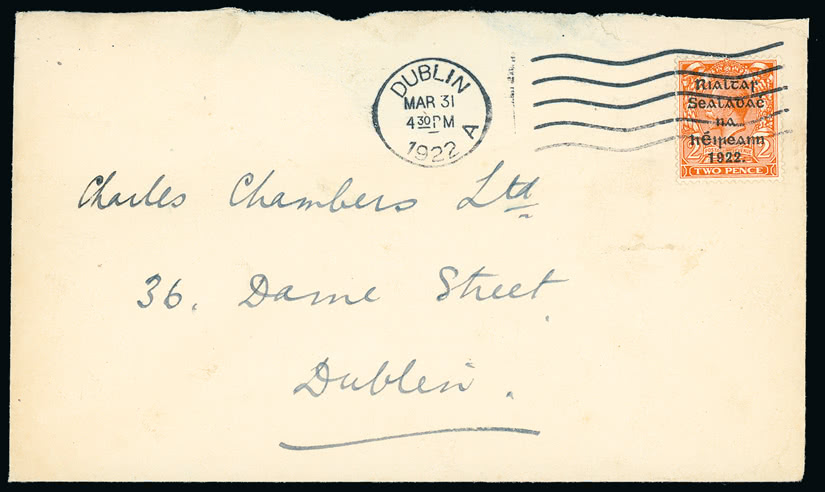 DUBLIN
MAR 31
4 30 PM
1922 A
Rialtas
Sealadaċ
na
hÉireann
1922.
2 2
TWO PENCE
Charles Chambers Ltd
36. Dame Street
Dublin.